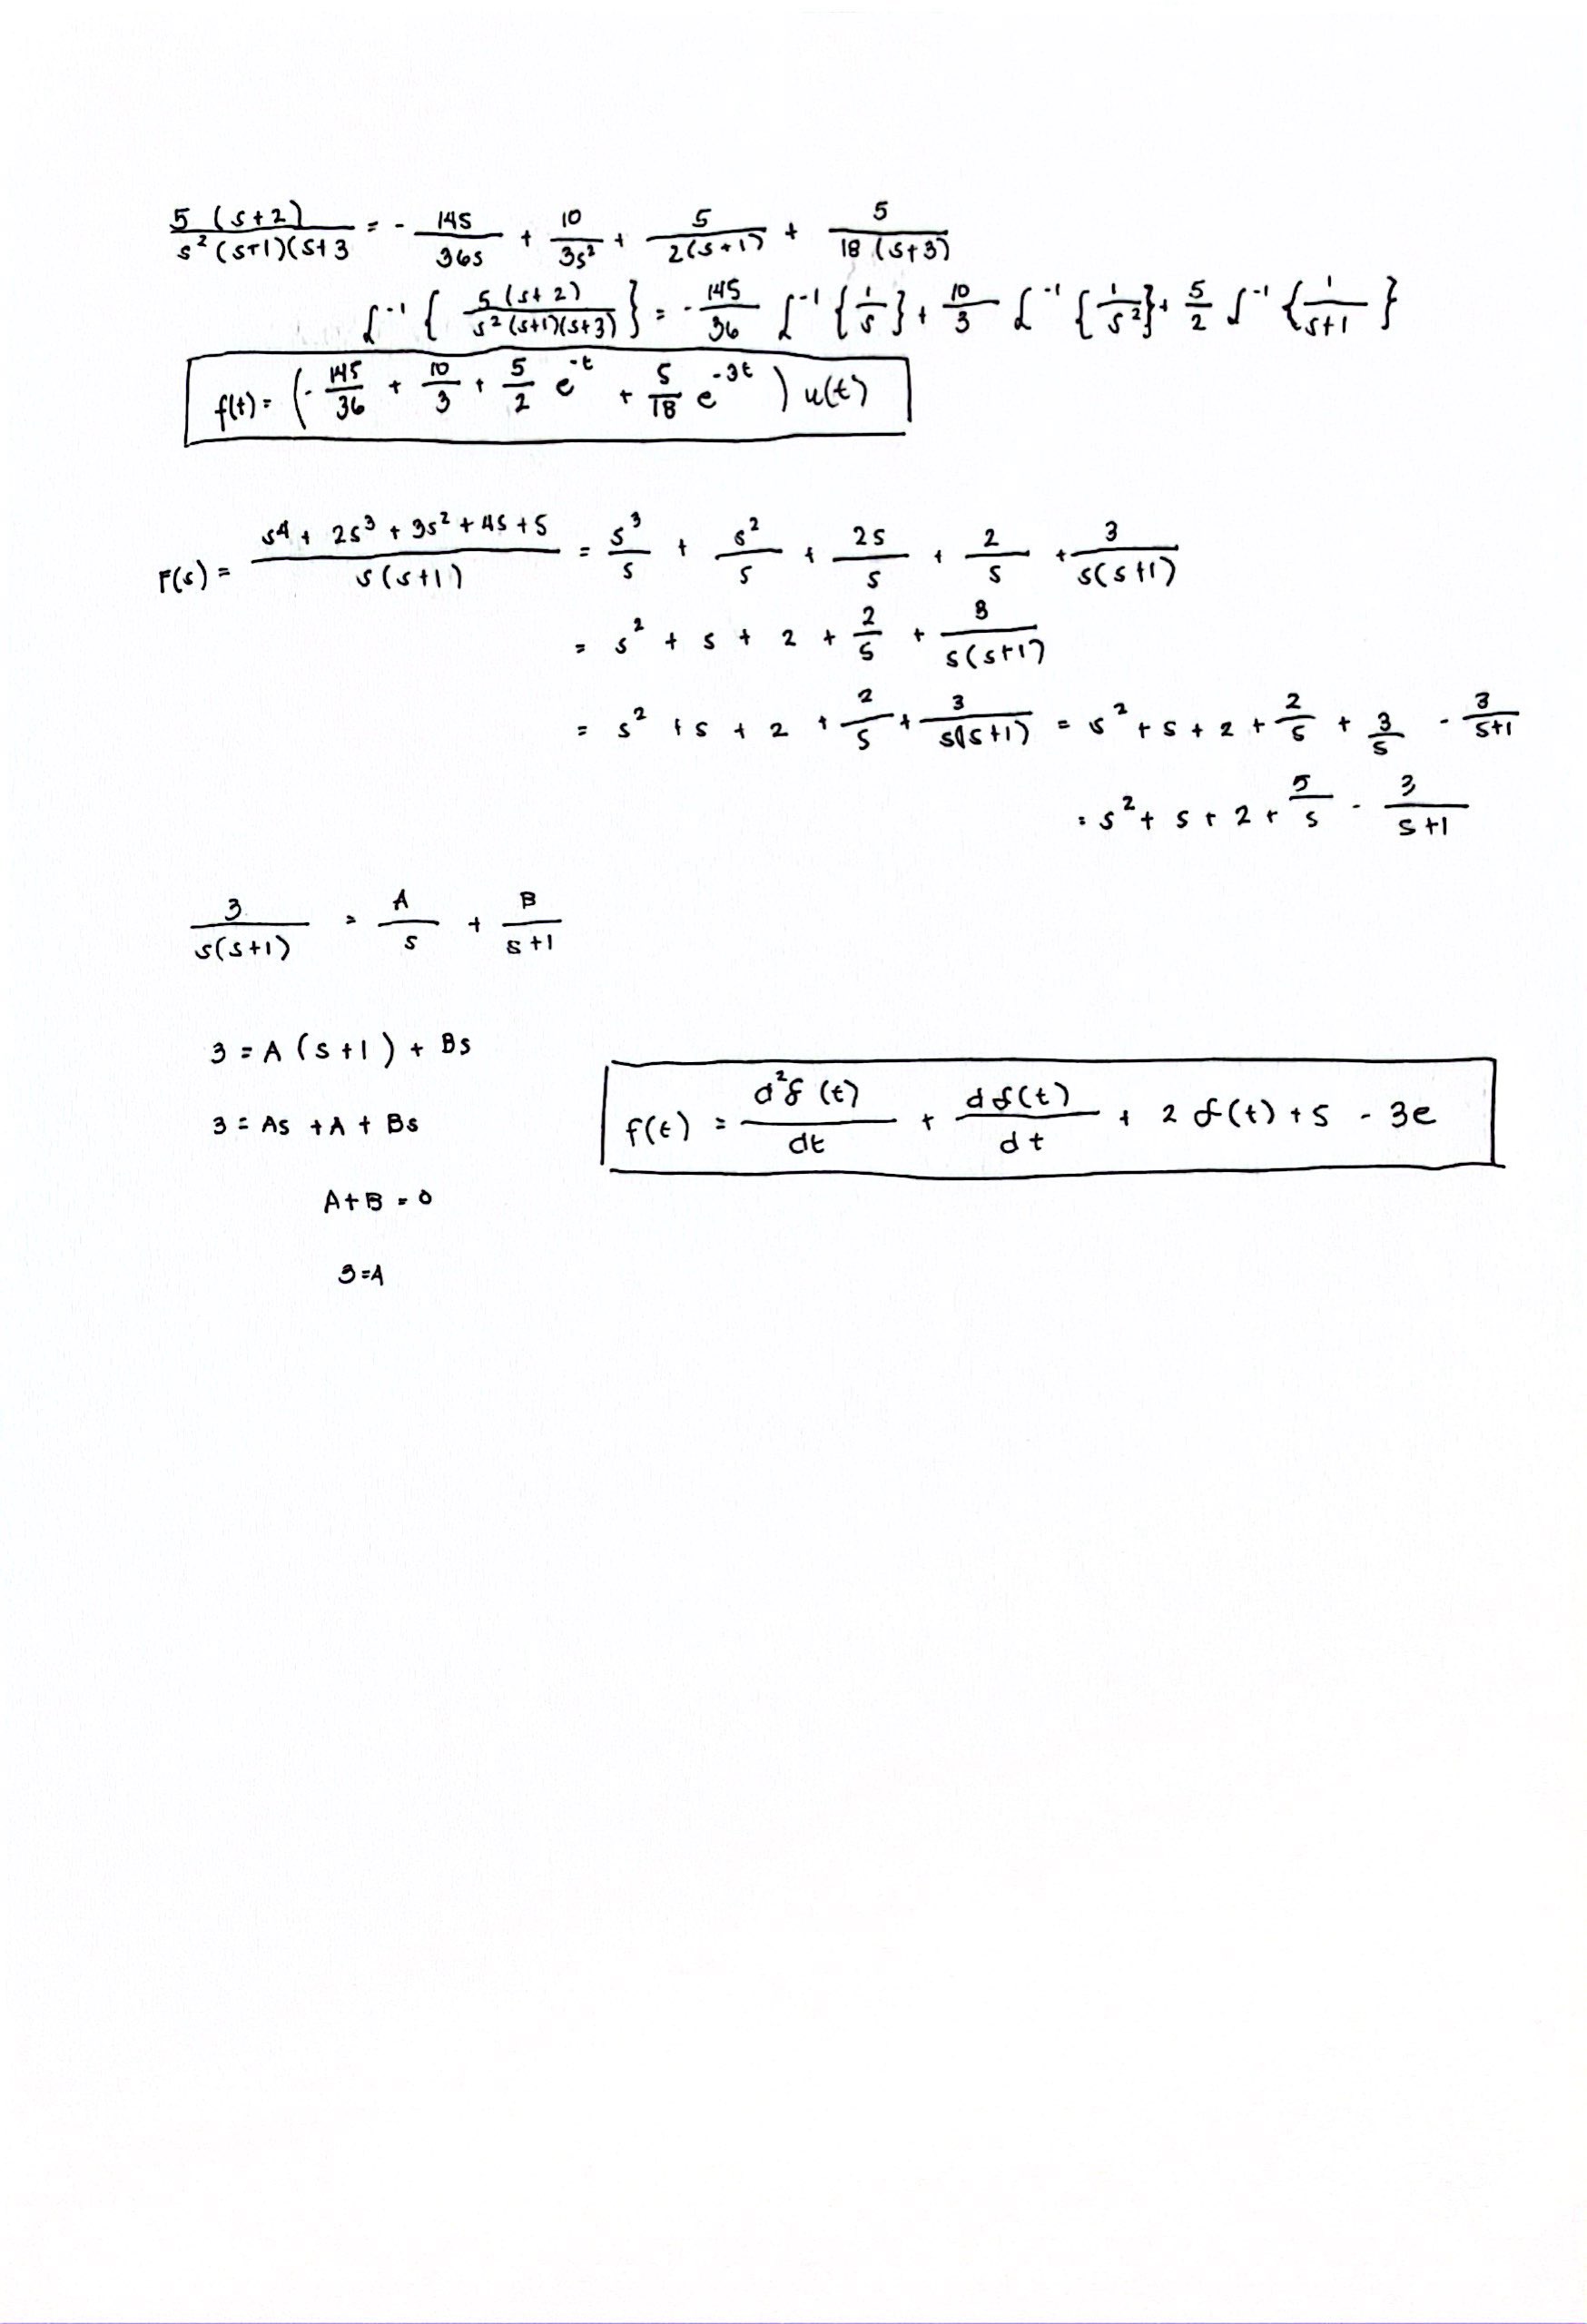 5 (s+2) / s² (s+1)(s+3 = - 145 / 36s + 10 / 3s² + 5 / 2(s+1) + 5 / 18 (s+3)
ℒ⁻¹ { 5(s+2) / s²(s+1)(s+3) } = - 145/36 ℒ⁻¹ { 1/s } + 10/3 ℒ⁻¹ { 1/s² } + 5/2 ℒ⁻¹ { 1/s+1 }
f(t) = ( - 145/36 + 10/3 + 5/2 e^-t + 5/18 e^-3t ) u(t)
F(s) = s⁴ + 2s³ + 3s² + 4s + 5 / s(s+1) = s³/s + s²/s + 2s/s + 2/s + 3 / s(s+1)
= s² + s + 2 + 2/s + 3 / s(s+1)
= s² + s + 2 + 2/s + 3 / s(s+1) = s² + s + 2 + 2/s + 3/s - 3 / s+1
= s² + s + 2 + 5/s - 3 / s+1
3 / s(s+1) = A / s + B / s+1
3 = A (s+1) + Bs
3 = As + A + Bs
A+B = 0
3 = A
f(t) = d²δ(t) / dt + dδ(t) / dt + 2 δ(t) + 5 - 3e